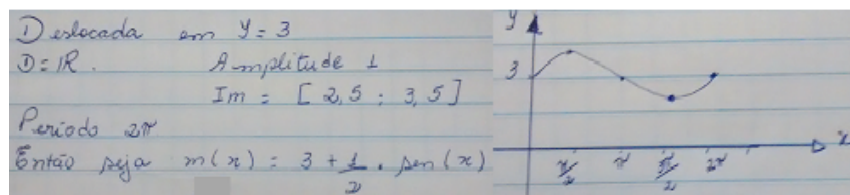 Deslocada em y = 3
D = IR. Amplitude 1
Im = [2,5 ; 3,5]
Período 2π
Então seja m(x) = 3 + 1/2 . sen(x)
y
3
π/2 π 2π x